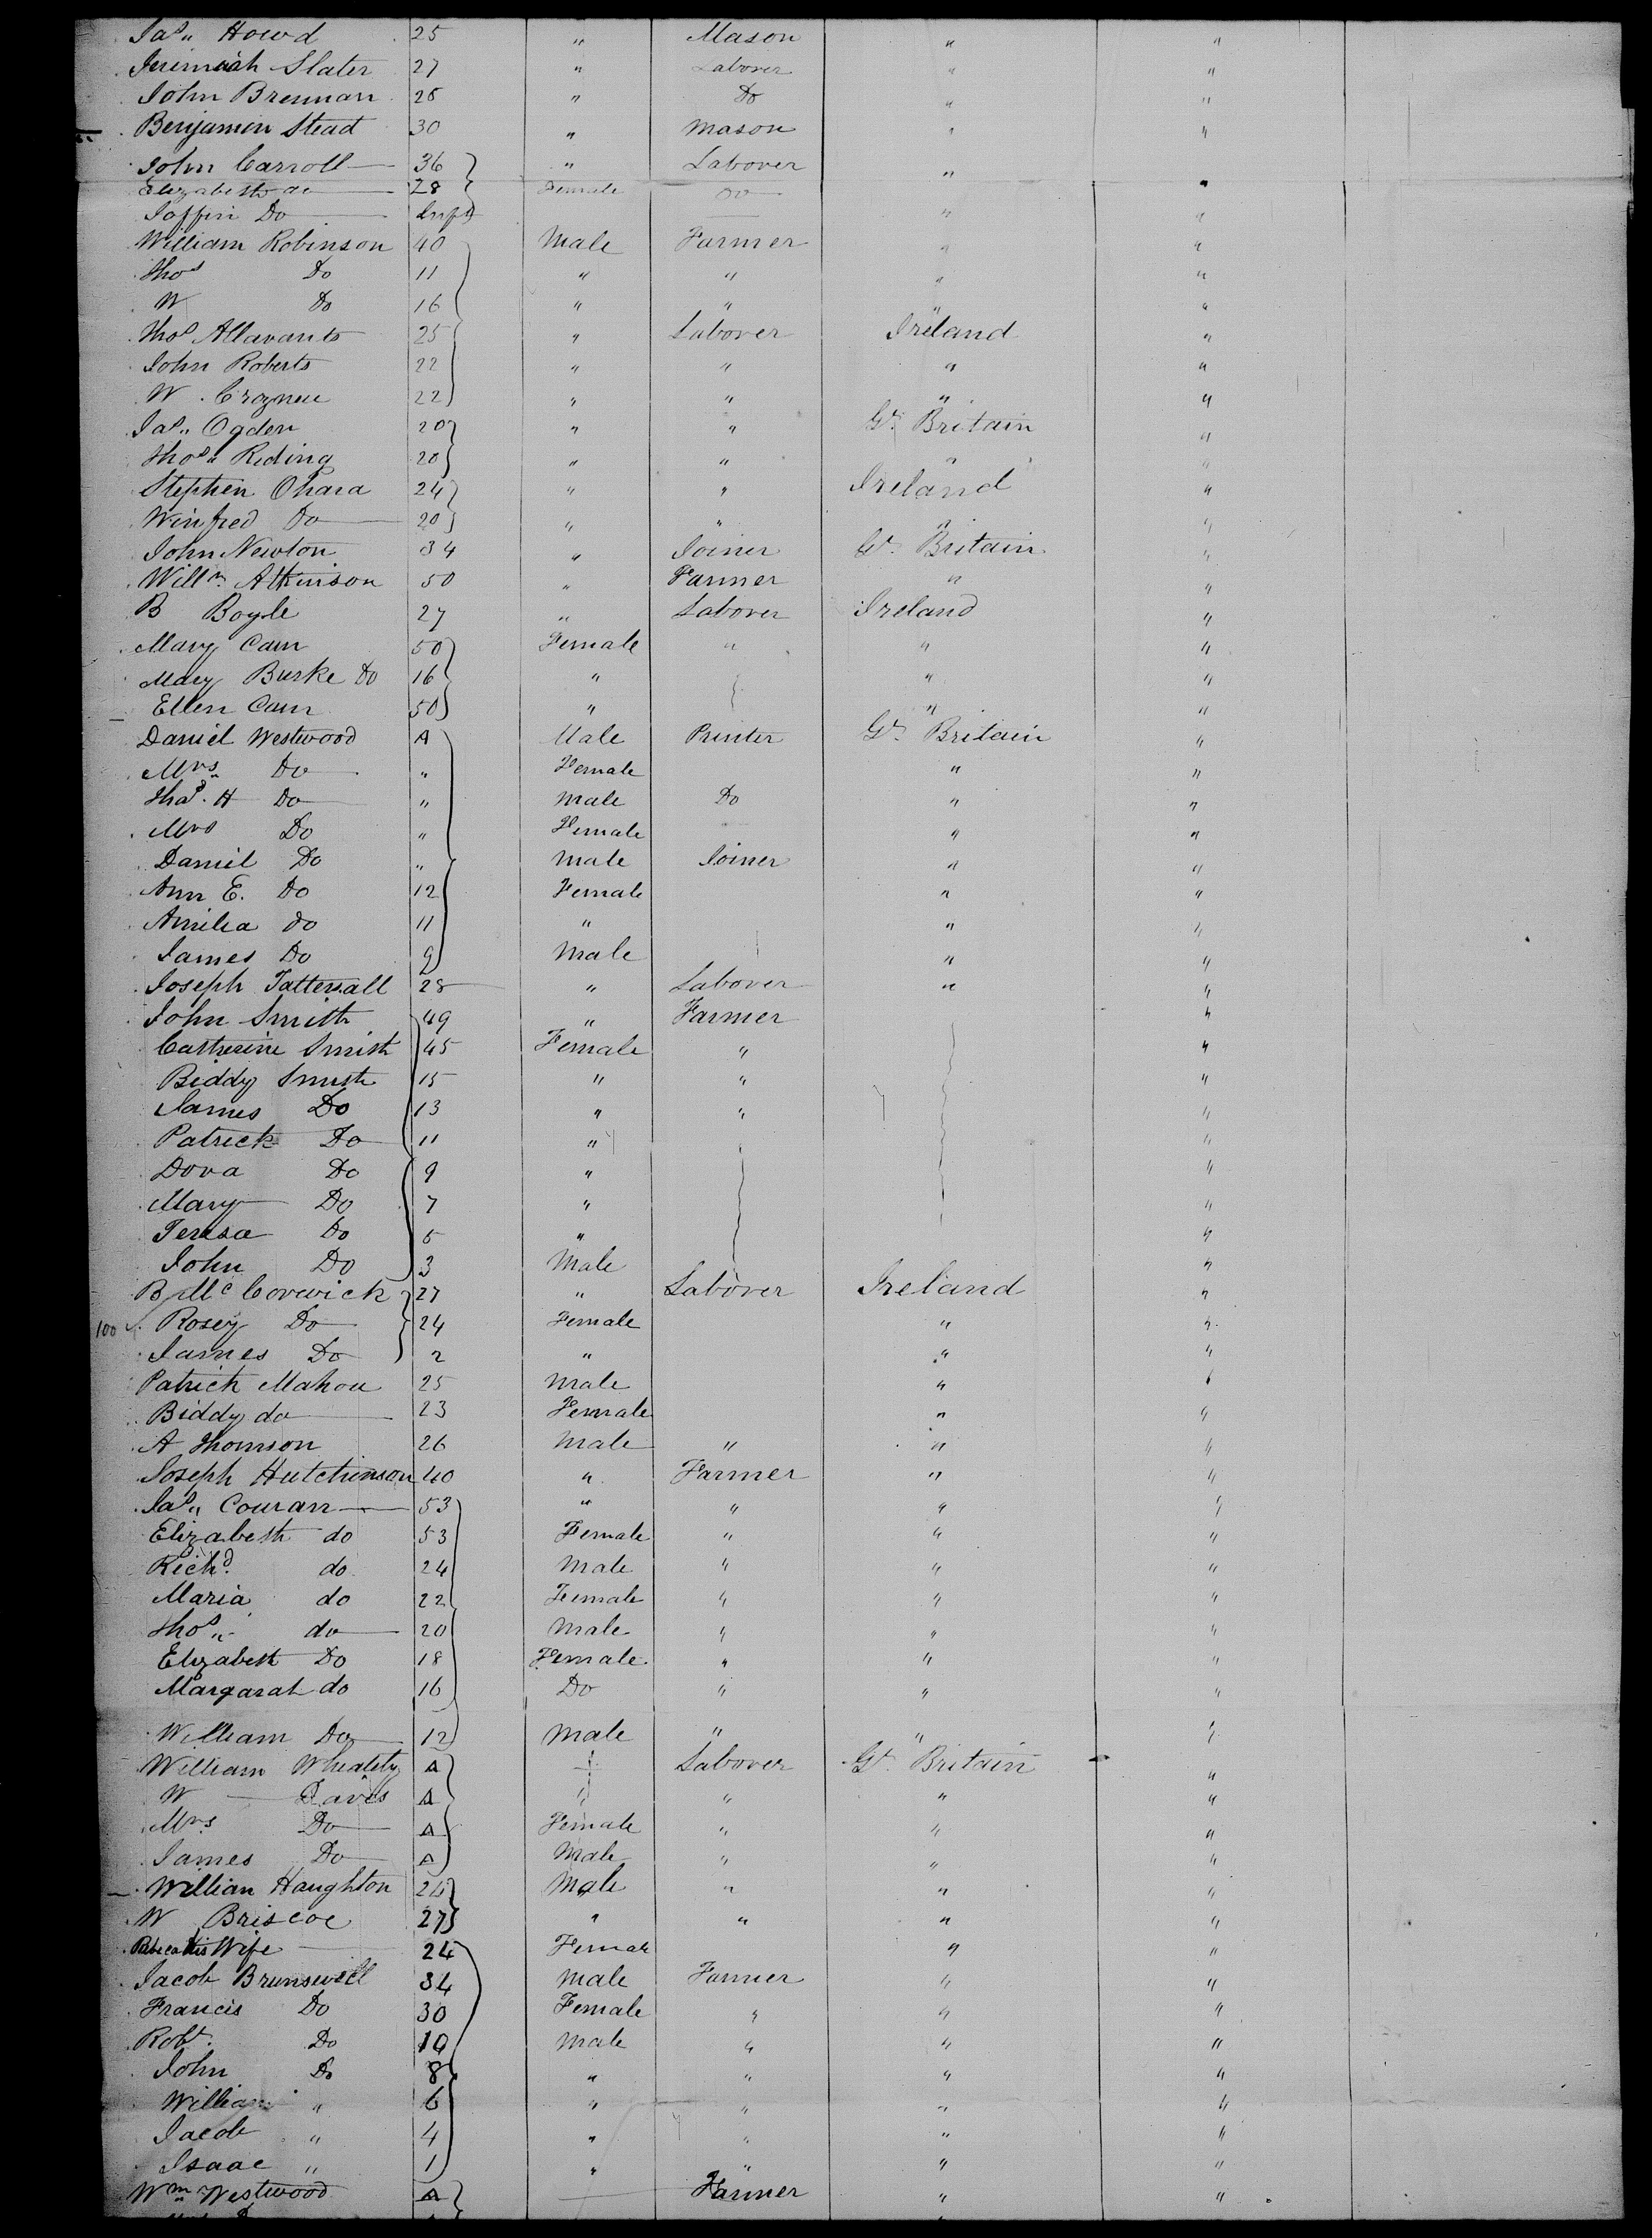 Jas „ Howd 25 „ Mason „ „
Jeremiah Slater 27 „ Laborer „ „
John Brennan 25 „ Do „ „
Benjamin Stead 30 „ Mason „ „
John Carroll 36 „ Laborer „
Elizabeth do 28 Female Do „
Do Inft „ „
William Robinson 40 Male Farmer „ „
Thos Do 11 „ „ „ „
W Do 16 „ „ „ „
Thos Allavants 25 „ Laborer Ireland „
John Roberts 22 „ „ „ „
W. 22 „ „ „ „
Jas „ Ogden 20 „ „ Gt. Britain „
Thos „ Reding 20 „ „ „ „
Stephen Ohara 24 „ „ Ireland „
Winfred Do 20 „ „ „ „
John Newton 34 „ Joiner Gt. Britain „
Willm. Atkinson 50 „ Farmer „ „
B Boyle 27 „ Laborer Ireland „
Mary Cain 50 Female „ „ „
Mary Burke Do 16 „ „ „
Ellen Cain 50 „ „ „
Daniel Westwood A Male Printer Gt. Britain „
Mrs Do „ Female „ „
Thos. H Do „ Male Do „ „
Mrs Do „ Female „ „
Daniel Do „ Male Joiner „ „
Ann E. Do 12 Female „ „
Amilia do 11 „ „ „
James Do 9 Male „ „
Joseph Tattersall 28 „ Laborer „ „
John Smith 49 „ Farmer „
Catherine Smith 45 Female „ „
Biddy Smith 15 „ „ „
James Do 13 „ „ „
Patrick Do 11 „ „
Dora Do 9 „ „
Mary Do 7 „ „
Teresa Do 5 „ „
John Do 3 Male „
B Mc Corwick 27 „ Laborer Ireland „
100 Rosey Do 24 Female „ „
James Do 2 „ „ „
Patrick Mahon 25 Male „ „
Biddy do 23 Female „ „
A Thomson 26 Male „ „ „
Joseph Hutchinson 40 „ Farmer „ „
Jas „ Couran 53 „ „ „ „
Elizabeth do 53 Female „ „ „
Richd. do 24 Male „ „ „
Maria do 22 Female „ „ „
Thos „ do 20 Male „ „ „
Elizabeth Do 18 Female „ „ „
Margarat do 16 Do „ „ „
William Do 12 Male „ „ „
William Wheatly A „ Laborer Gt. Britain „
W Davis A „ „ „ „
Mrs Do A Female „ „ „
James Do A Male „ „ „
William Haughton 26 Male „ „ „
W Briscoe 27 „ „ „ „
his Wife 24 Female „ „
Jacob Brunswill 34 Male Farmer „ „
Francis Do 30 Female „ „ „
Robt. Do 10 Male „ „ „
John Do 8 „ „ „ „
William „ 6 „ „ „ „
Jacob „ 4 „ „ „ „
Isaac „ 1 „ „ „ „
Wm „ Westwood A Farmer „ „